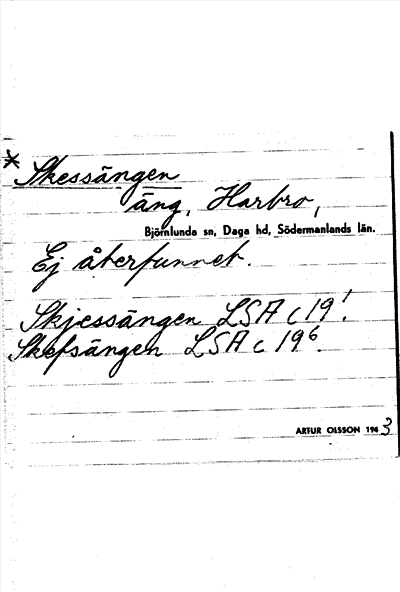 * Skessängen
äng, Harbro,
Björnlunda sn, Daga hd, Södermanlands län.
Ej återfunnet.
Skjessängen LSA c 19¹.
Skefsängen LSA c 19⁶.
ARTUR OLSSON 1963